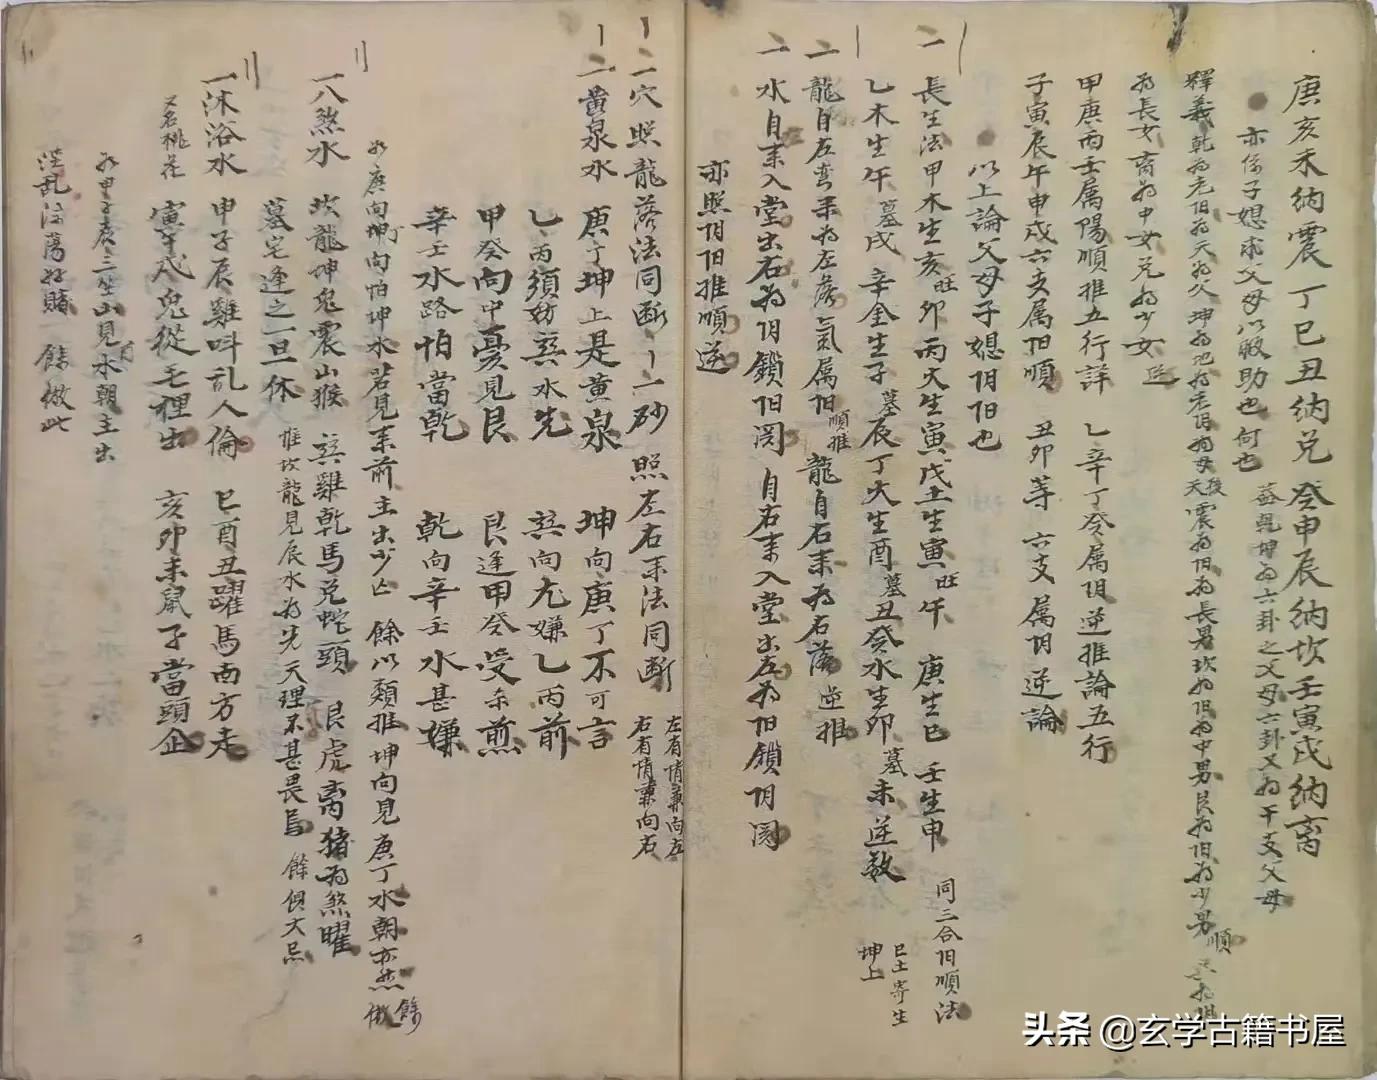 庚亥未纳震丁巳丑纳兑癸申辰纳坎壬寅戌纳离
亦係子媳求父母以殷助也何也 蓋乾坤為六卦之父母六卦又為干支父母
釋義乾為老阳為天為父坤為地為老阴為母後天震為阳為長男坎為阳為中男艮為阳為少男順 巽為阴
為長女离為中女兑為少女逆
甲庚丙壬属陽順推五行詳 乙辛丁癸属阴逆推論五行
子寅辰午申戌六支属阳順 丑卯等六支属阴逆論
以上論父母子媳阴阳也
一長生法甲木生亥旺卯丙火生寅戊土生寅旺午 庚生巳 壬生申 同三合阳順法
乙木生午墓戌 辛金生子墓辰丁火生酉墓丑癸水生卯墓未逆数 巳土寄生坤上
二龍自左弯来為左落氣属阳順推龍自右来為右落逆推
二水自来入堂出右為阴鎖阳関 自右来入堂出左為阳鎖阴関
亦照阴阳推順逆
一二穴照龍落法同断一二砂 照左右来法同断 左有情兼向左右有情兼向右
一二黄泉水 庚丁坤上是黄泉 坤向庚丁不可言
乙丙須妨巽水先 巽向尤嫌乙丙前
甲癸向中憂見艮 艮逢甲癸受煎
辛壬水路怕當乾 乾向辛壬水甚嫌
如庚向丁向怕坤水若見来前主出少亡 餘以類推坤向見庚丁水朝亦然餘倣
一八煞水 坎龍坤兔震山猴 巽雞乾馬兑蛇頭 艮虎离猪為煞曜
墓宅逢之一旦休 惟坎龍見辰水為先天理不甚畏焉 餘俱大忌
一沐浴水 申子辰雞叫乱人倫 巳酉丑躍馬南方走
又名桃花 寅午戌兔從毛裡出 亥卯未鼠子當頭企
如甲子辰三坐山見水朝主出
淫乱淫蕩好賭 餘倣此
头条 @玄学古籍书屋